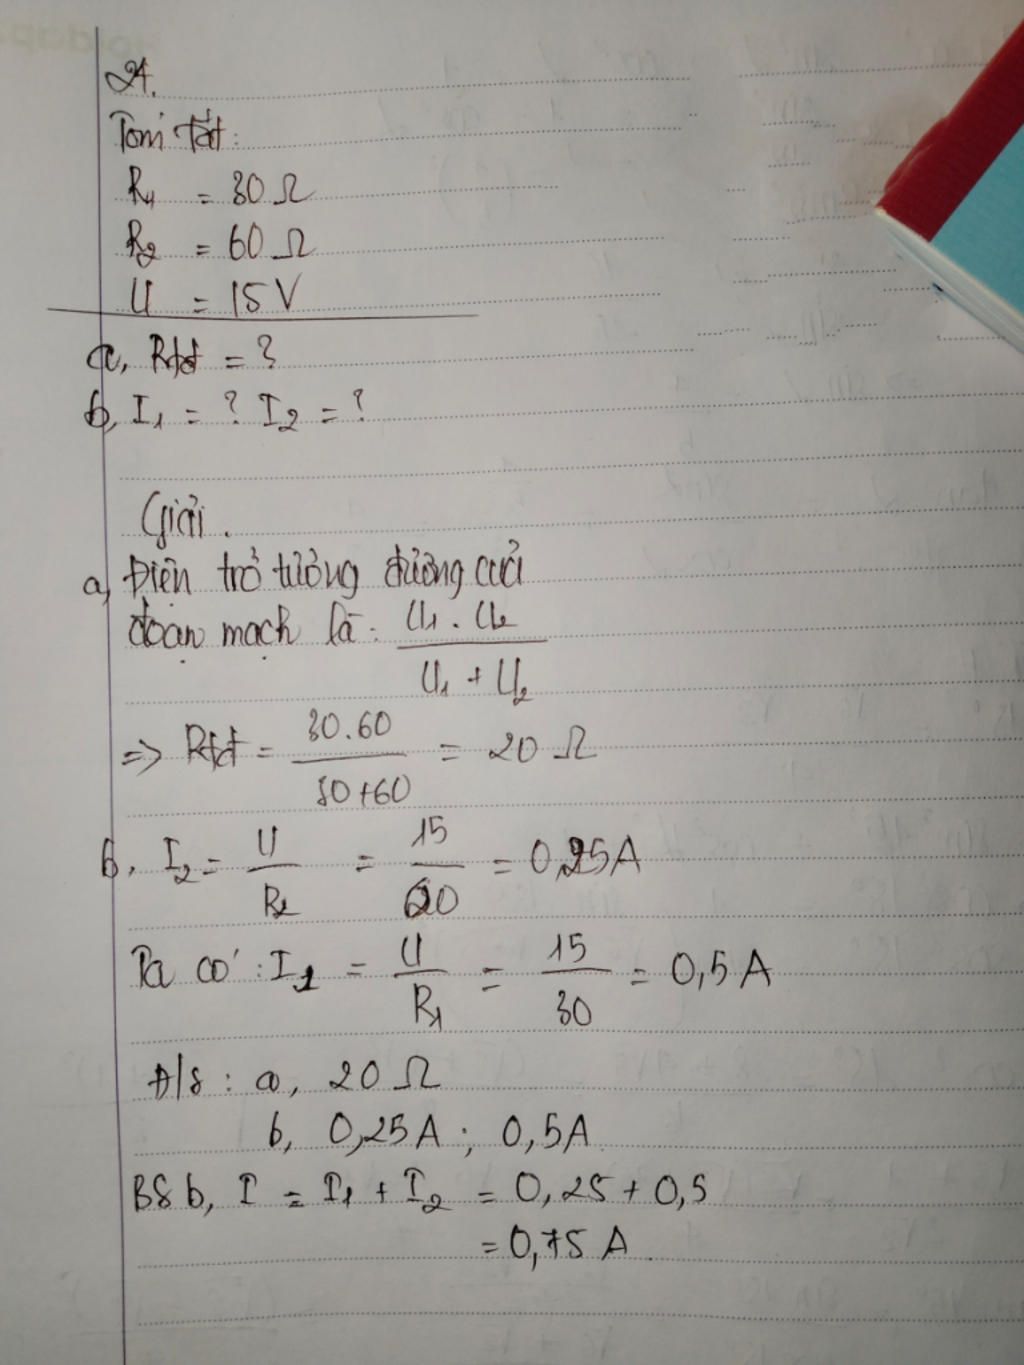 24.
Tóm tắt:
R1 = 30 Ω
R2 = 60 Ω
U = 15 V
a, Rtđ = ?
b, I1 = ? I2 = ?
Giải.
a, Điện trở tương đương cưởi
đoạn mạch là: U1 . U2 / U1 + U2
=> Rtđ = 30.60 / 30+60 = 20 Ω
b, I2 = U / R2 = 15 / 60 = 0,25A
Ta có: I1 = U / R1 = 15 / 30 = 0,5 A
Đ/S: a, 20 Ω
b, 0,25A; 0,5A
BS b, I = I1 + I2 = 0,25 + 0,5
= 0,75 A